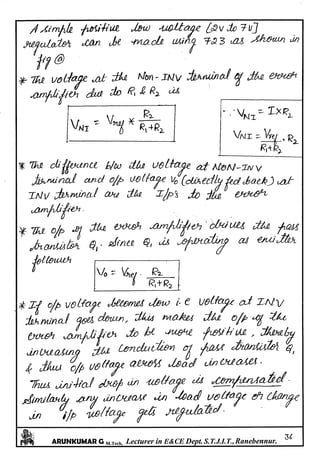 A simple positive low voltage [2v to 7v]
regulator can be made using 723 as shown in
fig ⓐ
* The voltage at the Non-INV terminal of the error
amplifier due to R1 & R2 is
VNI = Vref * R2 / R1+R2
∵ VNI = I×R2
VNI = Vref / R1+R2 . R2
* The difference b/w the voltage at NON-INV
terminal and o/p voltage Vo (directly fed back) at
INV terminal are the I/p's to the error
amplifier.
* The o/p of the error amplifier drives the pass
transistor Q1. Since Q1 is operating as emitter
follower
Vo = Vref . R2 / R1+R2
* If o/p voltage becomes low i.e voltage at INV
terminal goes down, this makes the o/p of the
error amplifier to be more positive, thereby
increasing the conduction of pass transistor Q1
& thus o/p voltage across load increases.
Thus initial drop in voltage is compensated.
Similarly any increase in load voltage or change
in i/p voltage gets regulated.
ARUNKUMAR G M.Tech, Lecturer in E&CE Dept. S.T.J.I.T., Ranebennur.
36